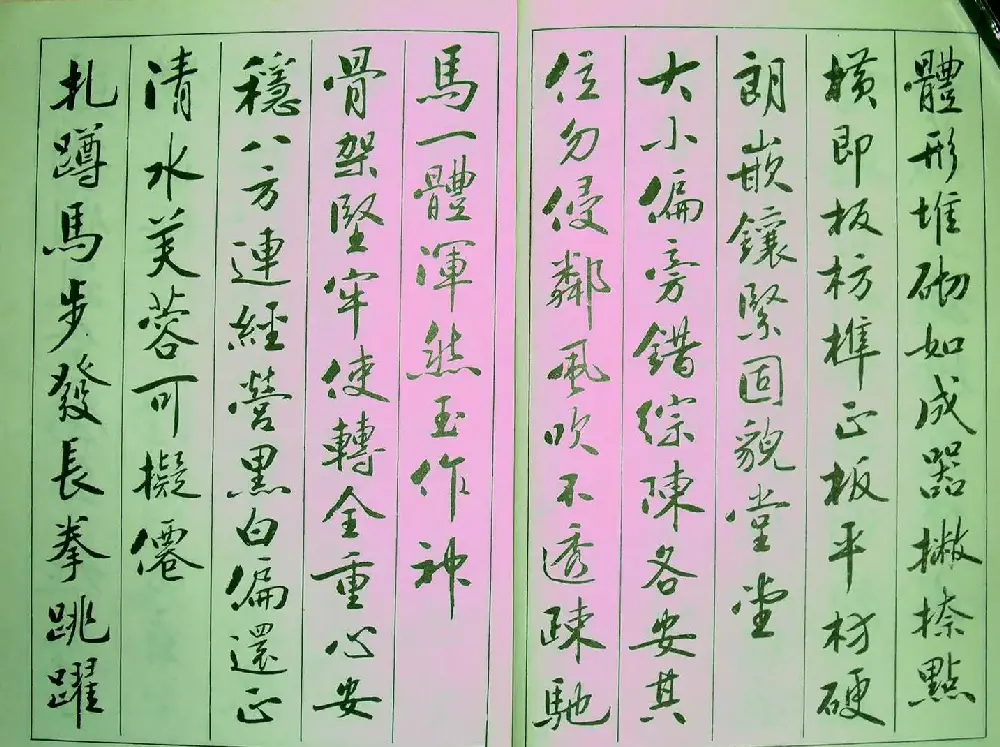 體形堆砌如成器撇捺點
橫即板枋榫正板平材硬
朗嵌鑲緊固貌堂堂
大小偏旁錯綜陳各安其
位勿侵鄰風吹不透疎馳
馬一體渾然玉作神
骨架堅牢使轉全重心安
穩八方連經營黑白偏還正
清水芙蓉可擬僊
扎蹲馬步發長拳跳躍